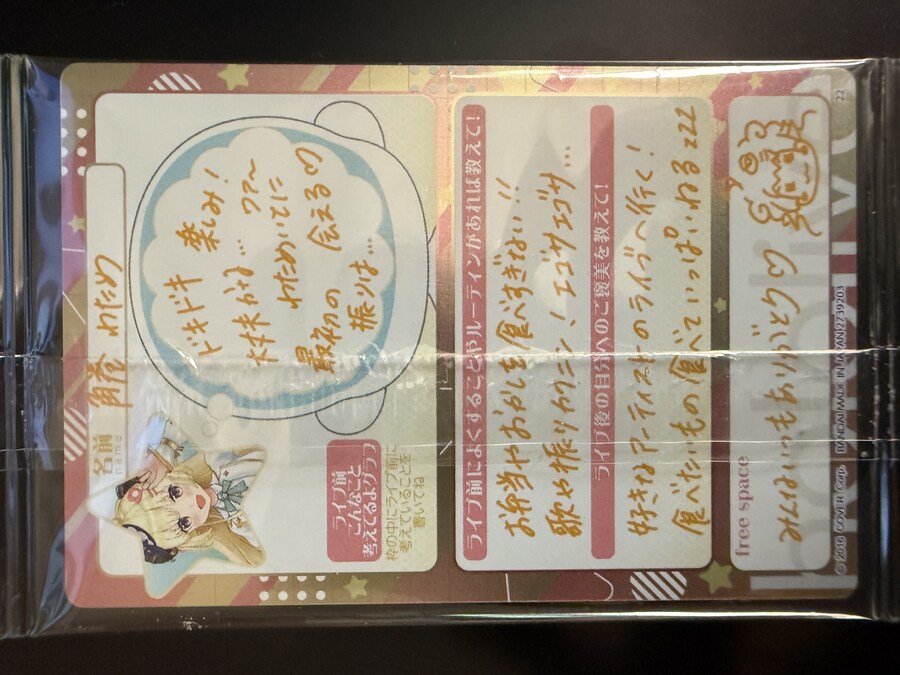 名前
name
角巻 わため
ライブ前
こんなこと
考えてるよグラフ
枠の中にライブ前に
考えていることを
書いてね
ドキドキ 楽しみ!
大丈夫かな… ワァ〜
最初の わためいてに
振りは… 会える♡
ライブ前によくすることやルーティンがあれば教えて!
お弁当やおかしを食べすぎない!!
歌や振りカクニン! エゴサエゴサ…
ライブ後の自分へのご褒美を教えて!
好きなアーティストのライブへ行く!
食べたいもの食べていっぱいねるzzz
free space
みんないつもありがとう♡
© 2016 COVER Corp. BANDAI MADE IN JAPAN 2739203
22